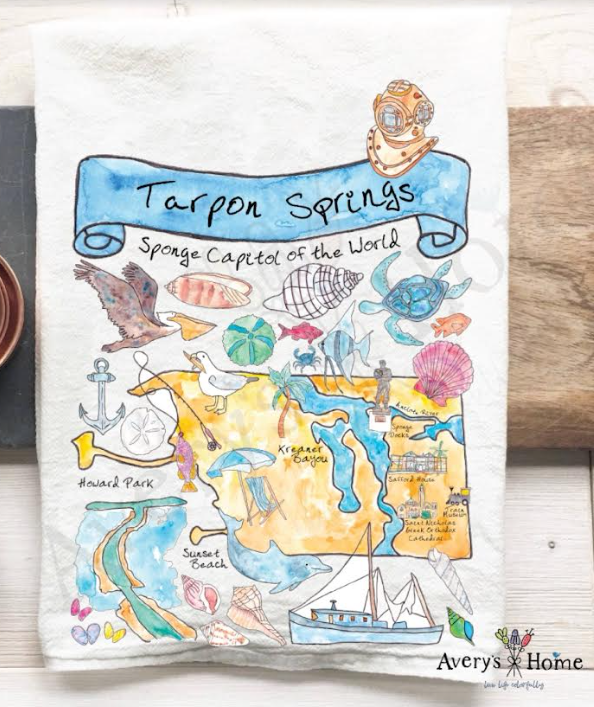 Tarpon Springs
Sponge Capitol of the World
Anclote River
Sponge
Docks
Kreamer
Bayou
Safford House
Howard Park
Train
Museum
Saint Nicholas
Greek Orthodox
Cathedral
Sunset
Beach
Avery's Home
live life colorfully